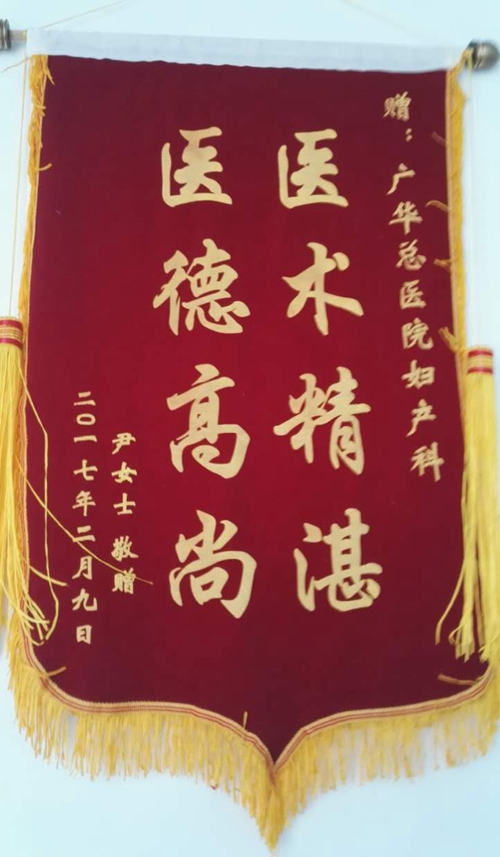 赠：广华总医院妇产科
医术精湛
医德高尚
尹女士 敬赠
二〇一七年二月九日